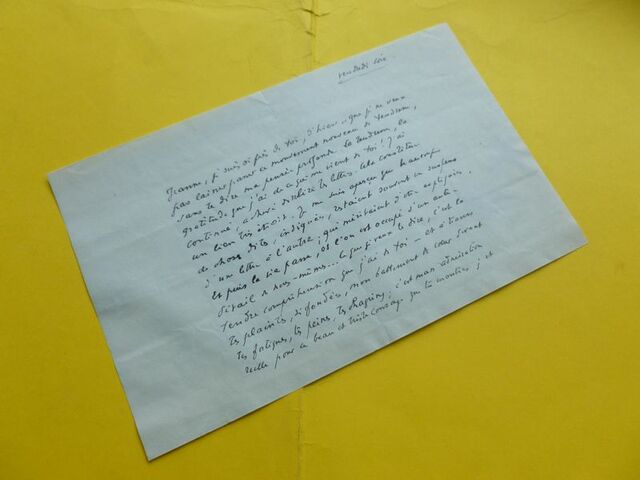 vendredi soir
Jeanne, je suis si près de toi, si bien, que je ne veux
pas laisser passer ce mouvement nouveau de tendresse,
sans te dire ma pensée profonde, la tendresse, la
gratitude que j'ai de ce qui me vient de toi! J'ai
continué, achevé de relire tes lettres. Cela constitue
un lien très étroit. Je me suis aperçu que beaucoup
de choses dites, indiquées, restaient souvent en suspens
d'une lettre à l'autre, qui méritaient d'être expliquées.
Et puis le tie passe, et l'on est occupé d'un autre
détail de nous-mêmes... Ce que je veux te dire, c'est la
tendre compréhension que j'ai de toi – et à travers
tes plaintes, si fondées, mon battement de cœur devant
tes fatigues, tes peines, tes chagrins; c'est mon admiration
réelle pour ce beau et triste courage que tu montres, et